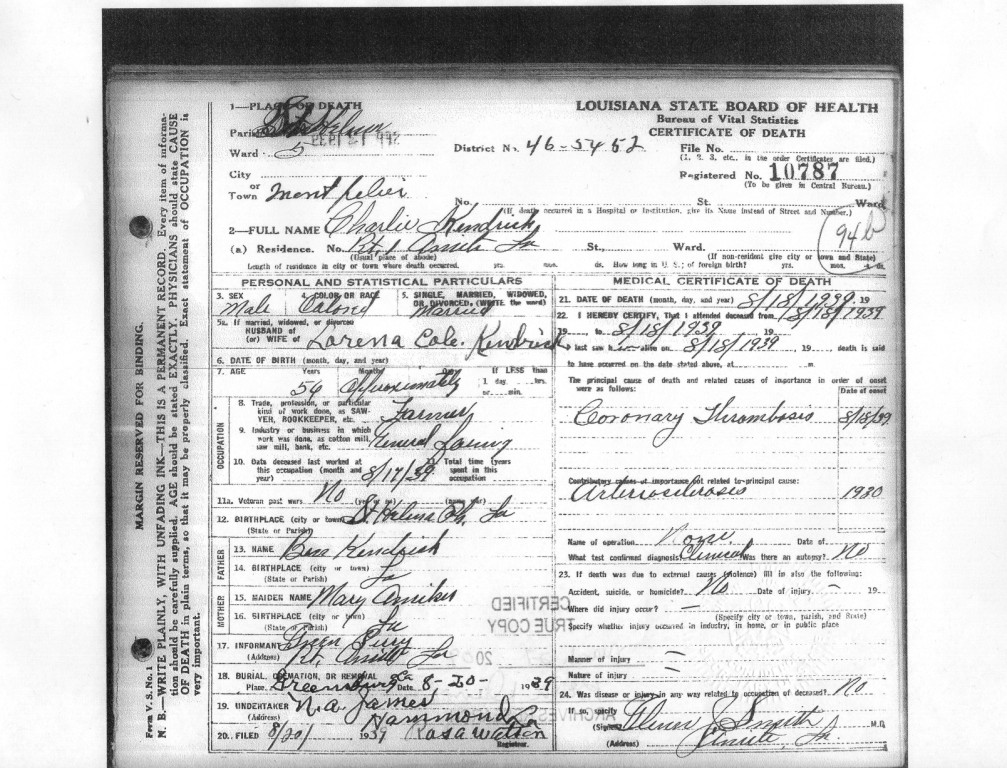 1—PLACE OF DEATH
Parish St. Helena
Ward 5
City
or
Town Montpelier
LOUISIANA STATE BOARD OF HEALTH
Bureau of Vital Statistics
CERTIFICATE OF DEATH
District No. 46-5452
File No.
(1, 2, 3, etc., in the order Certificates are filed.)
Registered No. 10787
(To be given in Central Bureau.)
No. St. Ward
(If death occurred in a Hospital or Institution, give its Name instead of Street and Number.)
94b
2—FULL NAME Charlie Kendrick
(a) Residence. No. Rt. 1 Amite La St., Ward.
(Usual place of abode) (If non-resident give city or town and State)
Length of residence in city or town where death occurred. yrs. mos. ds. How long in U. S.; of foreign birth? yrs. mos. ds.
PERSONAL AND STATISTICAL PARTICULARS
3. SEX 4. COLOR OR RACE 5. SINGLE, MARRIED, WIDOWED, OR DIVORCED, (WRITE the word)
Male Colored Married
5a. If married, widowed, or divorced
HUSBAND of
(or) WIFE of Lorena Cole Kendrick
6. DATE OF BIRTH (month, day, and year)
7. AGE Years Months If LESS than
1 day, hrs.
or min.
56 Approximately
OCCUPATION
8. Trade, profession, or particular
kind of work done, as SAW-
YER, BOOKKEEPER, etc. Farmer
9. Industry or business in which
work was done, as cotton mill,
saw mill, bank, etc. General
10. Date deceased last worked at
this occupation (month and
year) 8/17/39
11. Total time (years
spent in this
occupation
11a. Veteran past wars. No (yes or no) (name war)
12. BIRTHPLACE (city or town) St. Helena Ph. La
(State or Parish)
FATHER
13. NAME Ben Kendrick
14. BIRTHPLACE (city or town) La
(State or Parish)
MOTHER
15. MAIDEN NAME Mary Amiker
16. BIRTHPLACE (city or town) La
(State or Parish)
17. INFORMANT Green
(Address) Rt. 1 Amite La
18. BURIAL, CREMATION, OR REMOVAL
Place. Greensburg La Date 8-20- 1939
19. UNDERTAKER N.A. James
(Address) Hammond La
20. FILED 8/20/ 1939 Rosa Watson
Registrar.
MEDICAL CERTIFICATE OF DEATH
21. DATE OF DEATH (month, day, and year) 8/18/1939 19
22. I HEREBY CERTIFY, That I attended deceased from 8/18/1939
19 to 8/18/1939, 19
I last saw h alive on 8/18/1939, 19 death is said
to have occurred on the date stated above, at m.
The principal cause of death and related causes of importance in order of onset
were as follows:
Date of onset
Coronary Thrombosis 8/18/39
Contributory causes of importance not related to principal cause:
Arteriosclerosis 1930
Name of operation None. Date of
What test confirmed diagnosis? Clinical Was there an autopsy? No
23. If death was due to external causes (violence) fill in also the following:
Accident, suicide, or homicide? No Date of injury — 19
Where did injury occur? —
(Specify city or town, parish, and State)
Specify whether injury occurred in industry, in home, or in public place
Manner of injury —
Nature of injury —
24. Was disease or injury in any way related to occupation of deceased? No
If so, specify
(Signed) J Smith M.D.
(Address) Amite, La.
CERTIFIED
TRUE COPY
20
MARGIN RESERVED FOR BINDING.
N. B.—WRITE PLAINLY, WITH UNFADING INK—THIS IS A PERMANENT RECORD. Every item of informa-
tion should be carefully supplied. AGE should be stated EXACTLY. PHYSICIANS should state CAUSE
OF DEATH in plain terms, so that it may be properly classified. Exact statement of OCCUPATION is
very important.
Form V. S. No. 1